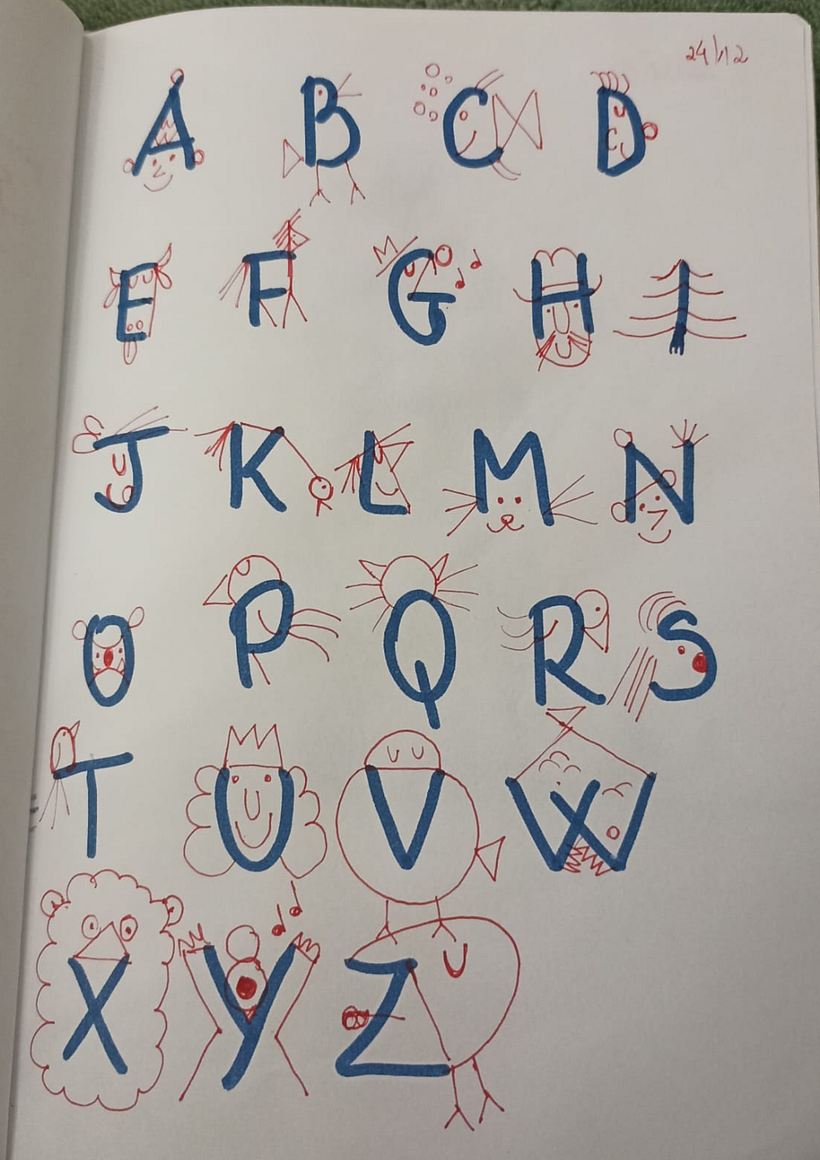 24/12
A B C D
E F G H I
J K L M N
O P Q R S
T U V W
X Y Z